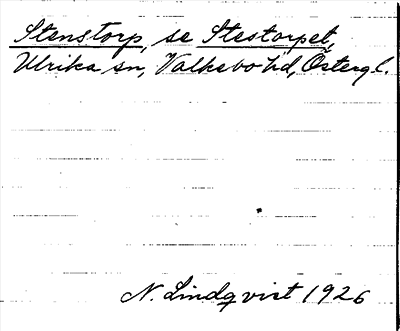 Stenstorp, se Stestorpet,
Ulrika sn, Valkebo hd, Östergl.
N. Lindqvist 1926